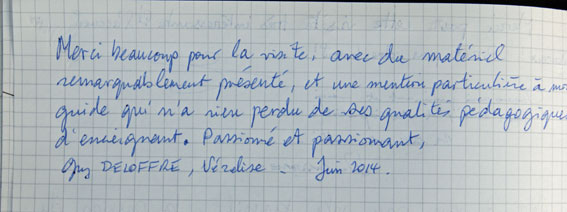 Merci beaucoup pour la visite, avec du matériel
remarquablement présenté, et une mention particulière à mo
guide qui n'a rien perdu de ses qualités pédagogiques
d'enseignant. Passionné et passionnant,
Guy DELOFFRE, Vézelise - Juin 2014.